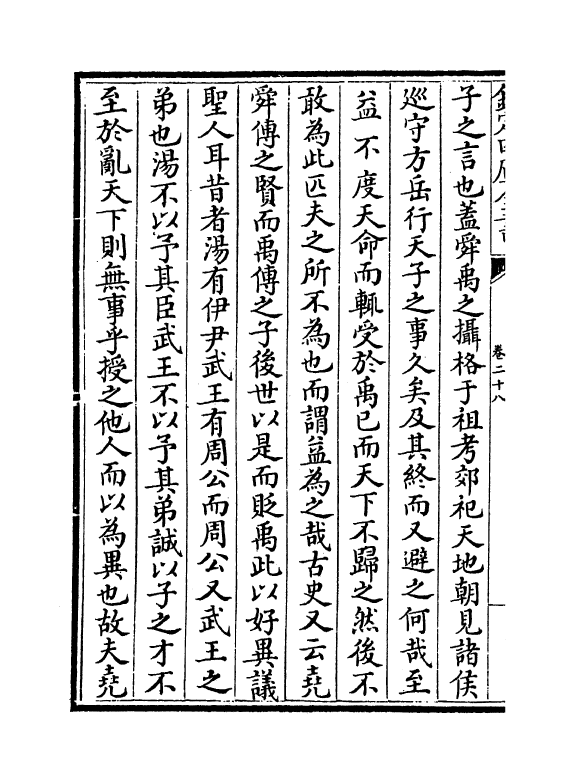 卷二十八
子之言也蓋舜禹之攝格于祖考郊祀天地朝見諸侯
巡守方岳行天子之事久矣及其終而又避之何哉至
益不度天命而輒受於禹已而天下不歸之然後不
敢為此匹夫之所不為也而謂益為之哉古史又云堯
舜傳之賢而禹傳之子後世以是而貶禹此以好異議
聖人耳昔者湯有伊尹武王有周公而周公又武王之
弟也湯不以予其臣武王不以予其弟誠以子之才不
至於亂天下則無事乎授之他人而以為異也故夫堯